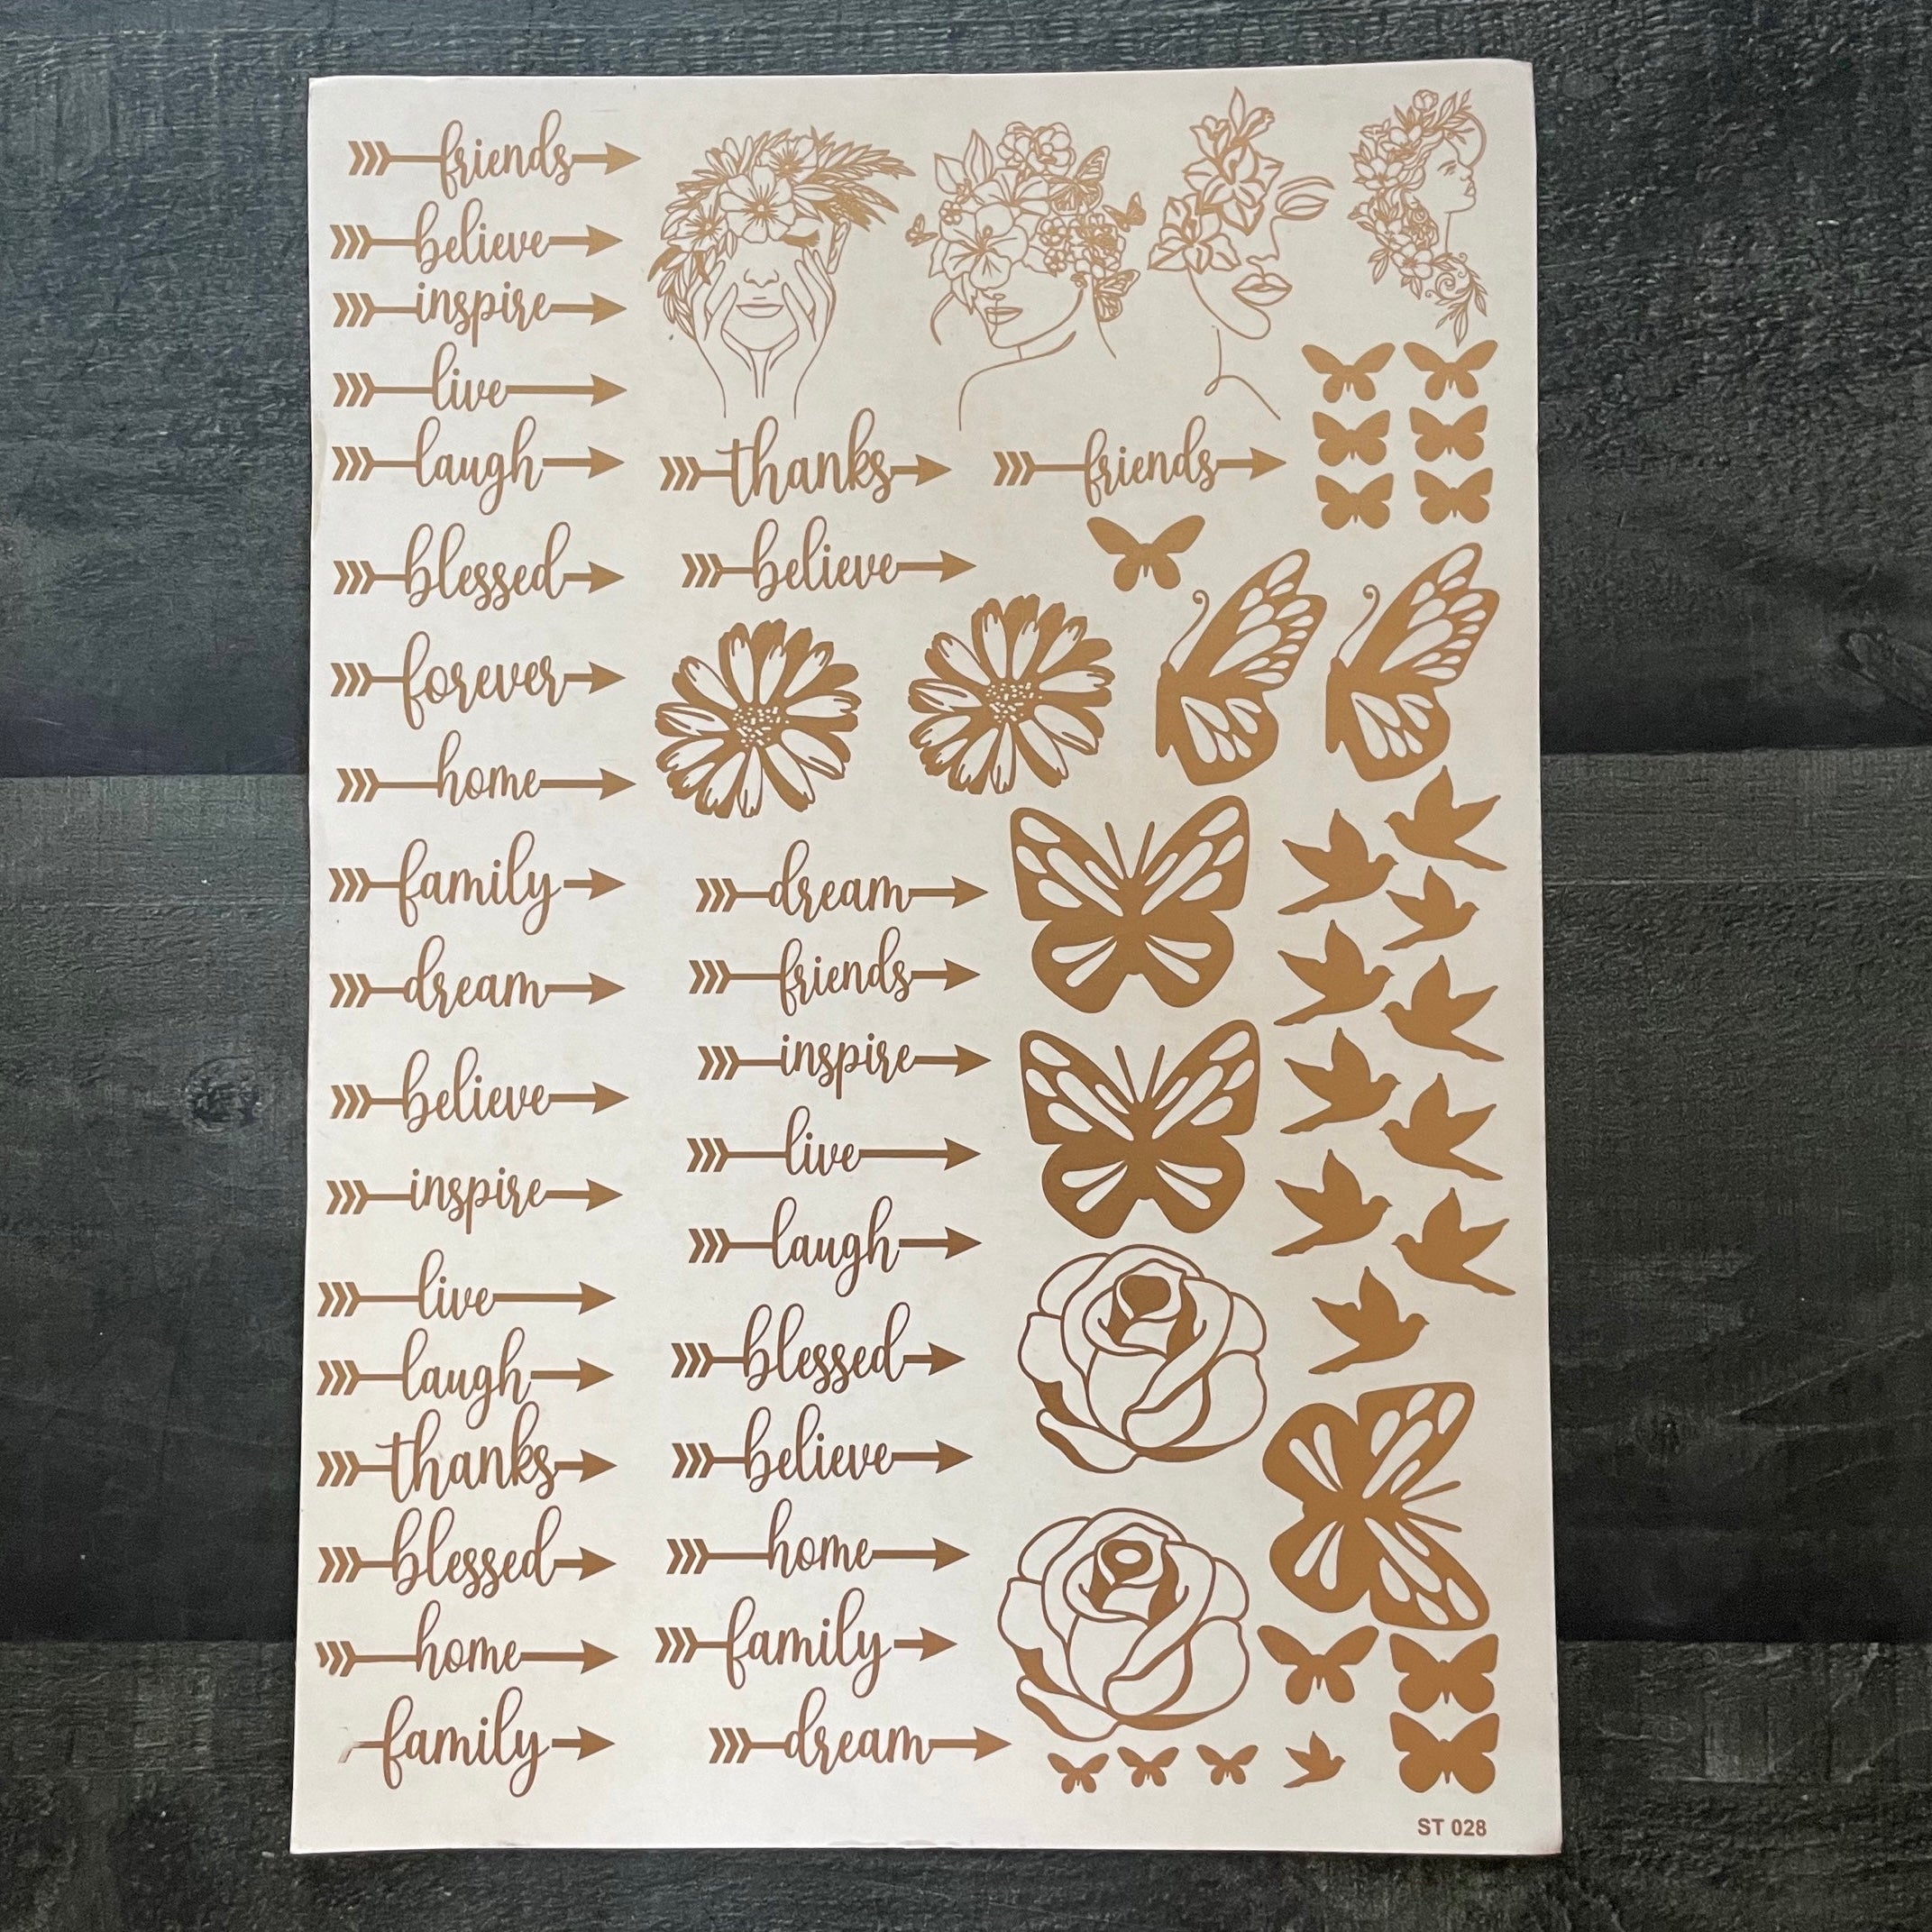 friends
believe
inspire
live
laugh
blessed
forever
home
family
dream
believe
inspire
live
laugh
thanks
blessed
home
family
thanks
believe
dream
friends
inspire
live
laugh
blessed
believe
home
family
dream
friends
ST 028